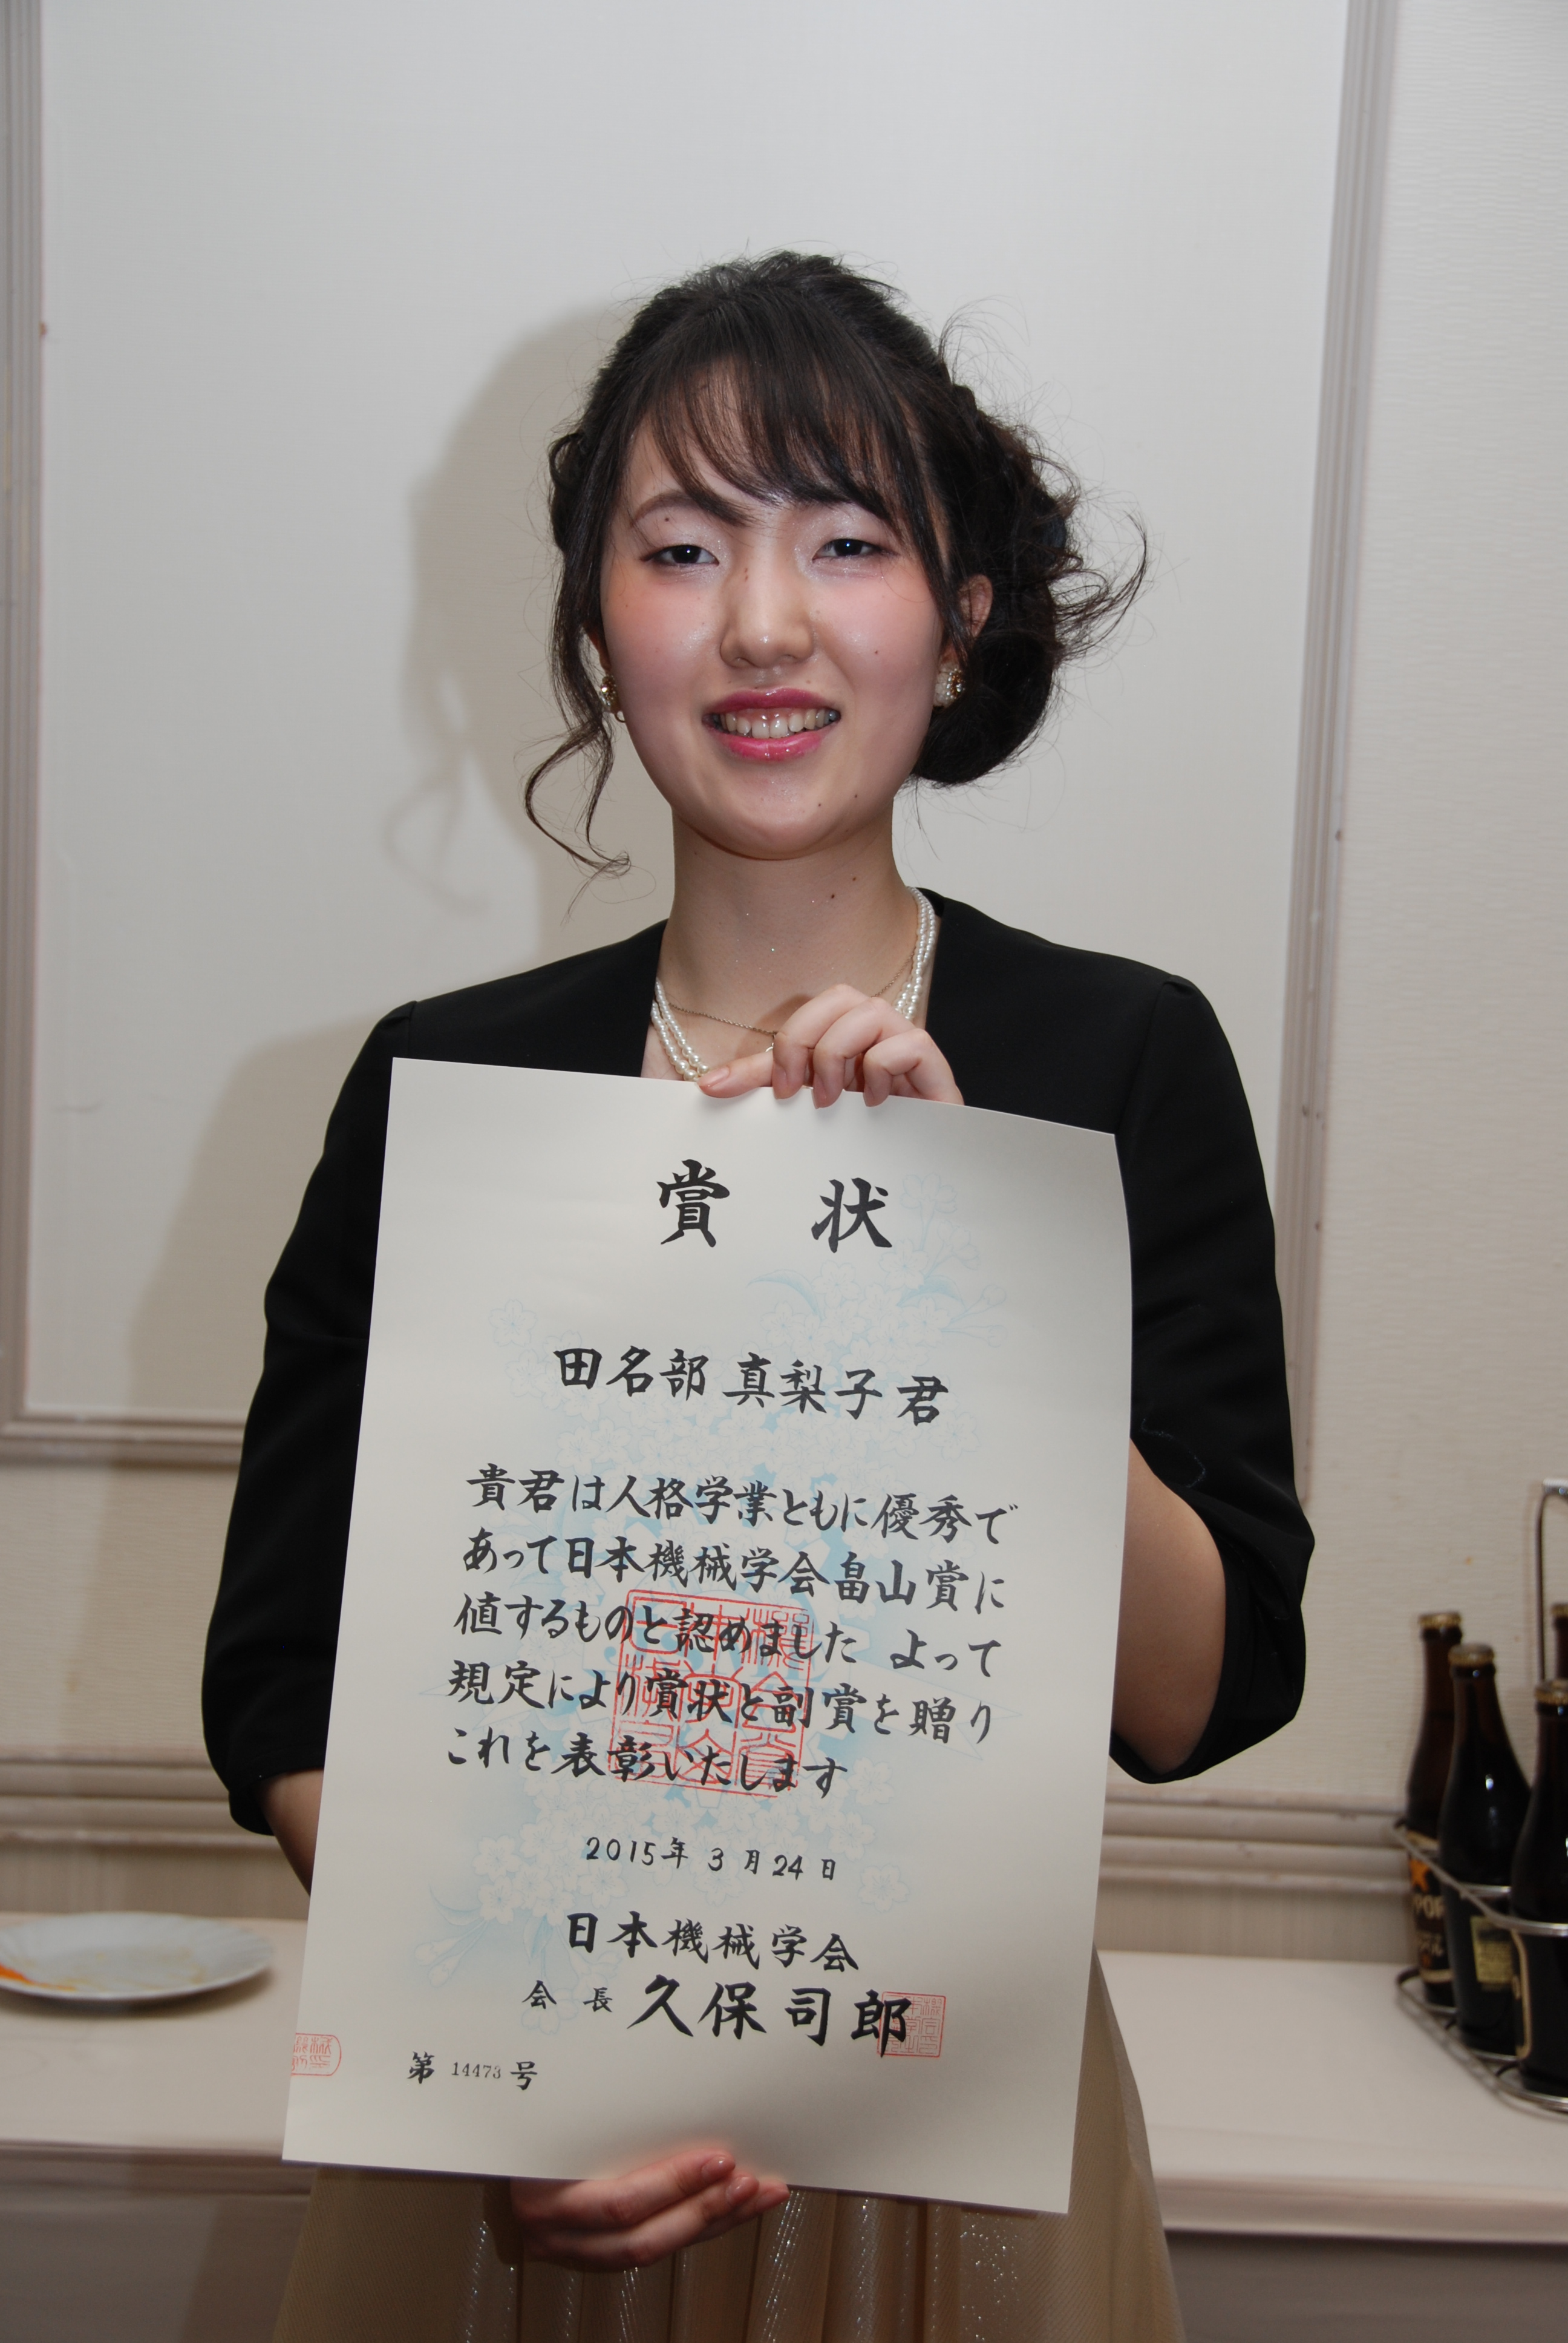 賞 状
田名部 真梨子 君
貴君は人格学業ともに優秀で
あって日本機械学会畠山賞に
値するものと認めました よって
規定により賞状と副賞を贈り
これを表彰いたします
2015年 3 月 24 日
日本機械学会
会 長 久保司郎
第 14473 号